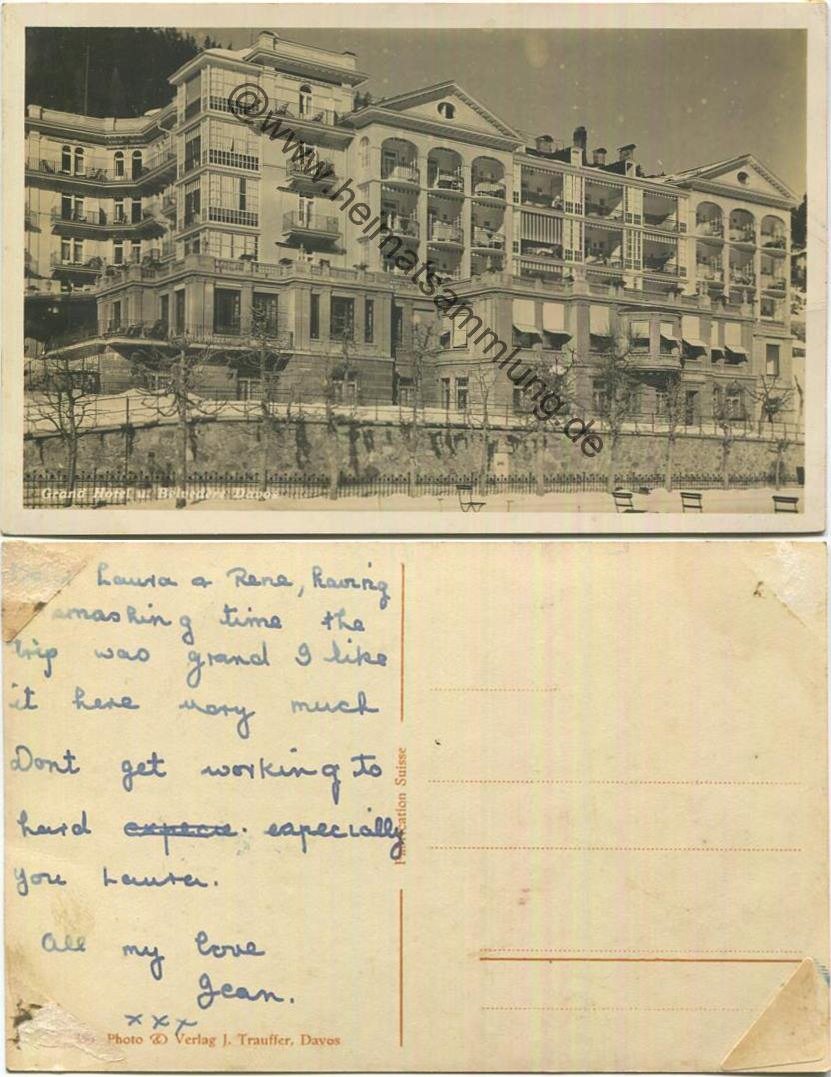 @www.heimatsammlung.de
Grand Hotel u. Belvedere Davos
Dear Laura & Rene, having
smashing time the
trip was grand I like
it here very much
Dont get working to
hard expecu. especially
you Laura.
All my love
Jean.
xxx
Fabrication Suisse
Photo & Verlag J. Trauffer, Davos